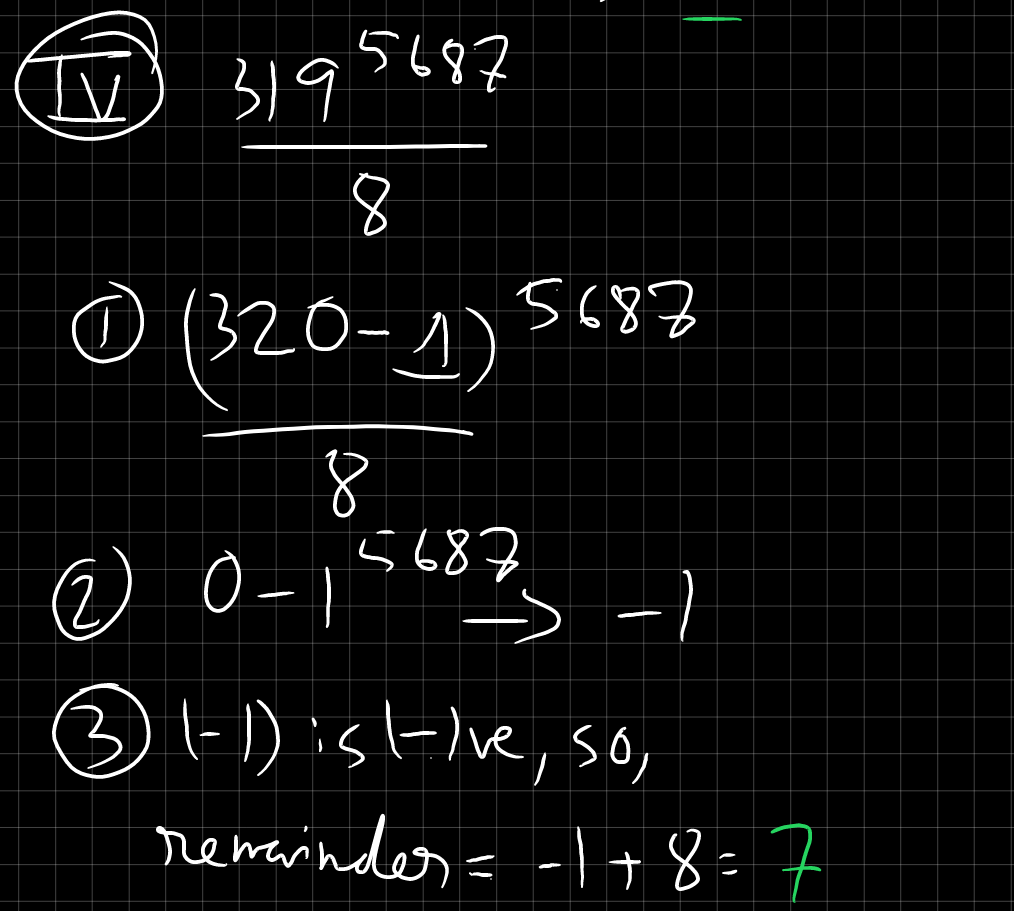 IV 319^5687
8
① (320-1)^5687
8
② 0-1^5687 → -1
③ (-1) is (-)ve, so,
remainder = -1+8= 7